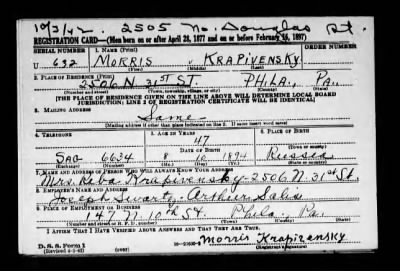 10/3/42 2505 N. Douglas St.
REGISTRATION CARD—(Men born on or after April 28, 1877 and on or before February 16, 1897)
SERIAL NUMBER 1. NAME (Print) ORDER NUMBER
U 632 MORRIS KRAPIVENSKY
(First) (Middle) (Last)
2. PLACE OF RESIDENCE (Print)
2506 N. 31ST ST. PHILA., PA.
(Number and street) (Town, township, village, or city) (County) (State)
[THE PLACE OF RESIDENCE GIVEN ON THE LINE ABOVE WILL DETERMINE LOCAL BOARD
JURISDICTION; LINE 2 OF REGISTRATION CERTIFICATE WILL BE IDENTICAL]
3. MAILING ADDRESS
Same
(Mailing address if other than place indicated on line 2. If same insert word same)
4. TELEPHONE 5. AGE IN YEARS 6. PLACE OF BIRTH
47
DATE OF BIRTH
Sag 6634 8 10 1894 Russia
(Exchange) (Number) (Mo.) (Day) (Yr.) (State or country)
7. NAME AND ADDRESS OF PERSON WHO WILL ALWAYS KNOW YOUR ADDRESS
Mrs. Reba Krapivensky-2506 N. 31 st St.
8. EMPLOYER'S NAME AND ADDRESS
Joseph Swartz-Arthur Salis
9. PLACE OF EMPLOYMENT OR BUSINESS
147 N. 10th St. Phila., Pa.
(Number and street or R. F. D. number) (Town) (County) (State)
I AFFIRM THAT I HAVE VERIFIED ABOVE ANSWERS AND THAT THEY ARE TRUE.
D. S. S. Form 1
(Revised 4-1-42) (over)
Morris Krapivensky
(Registrant's signature)